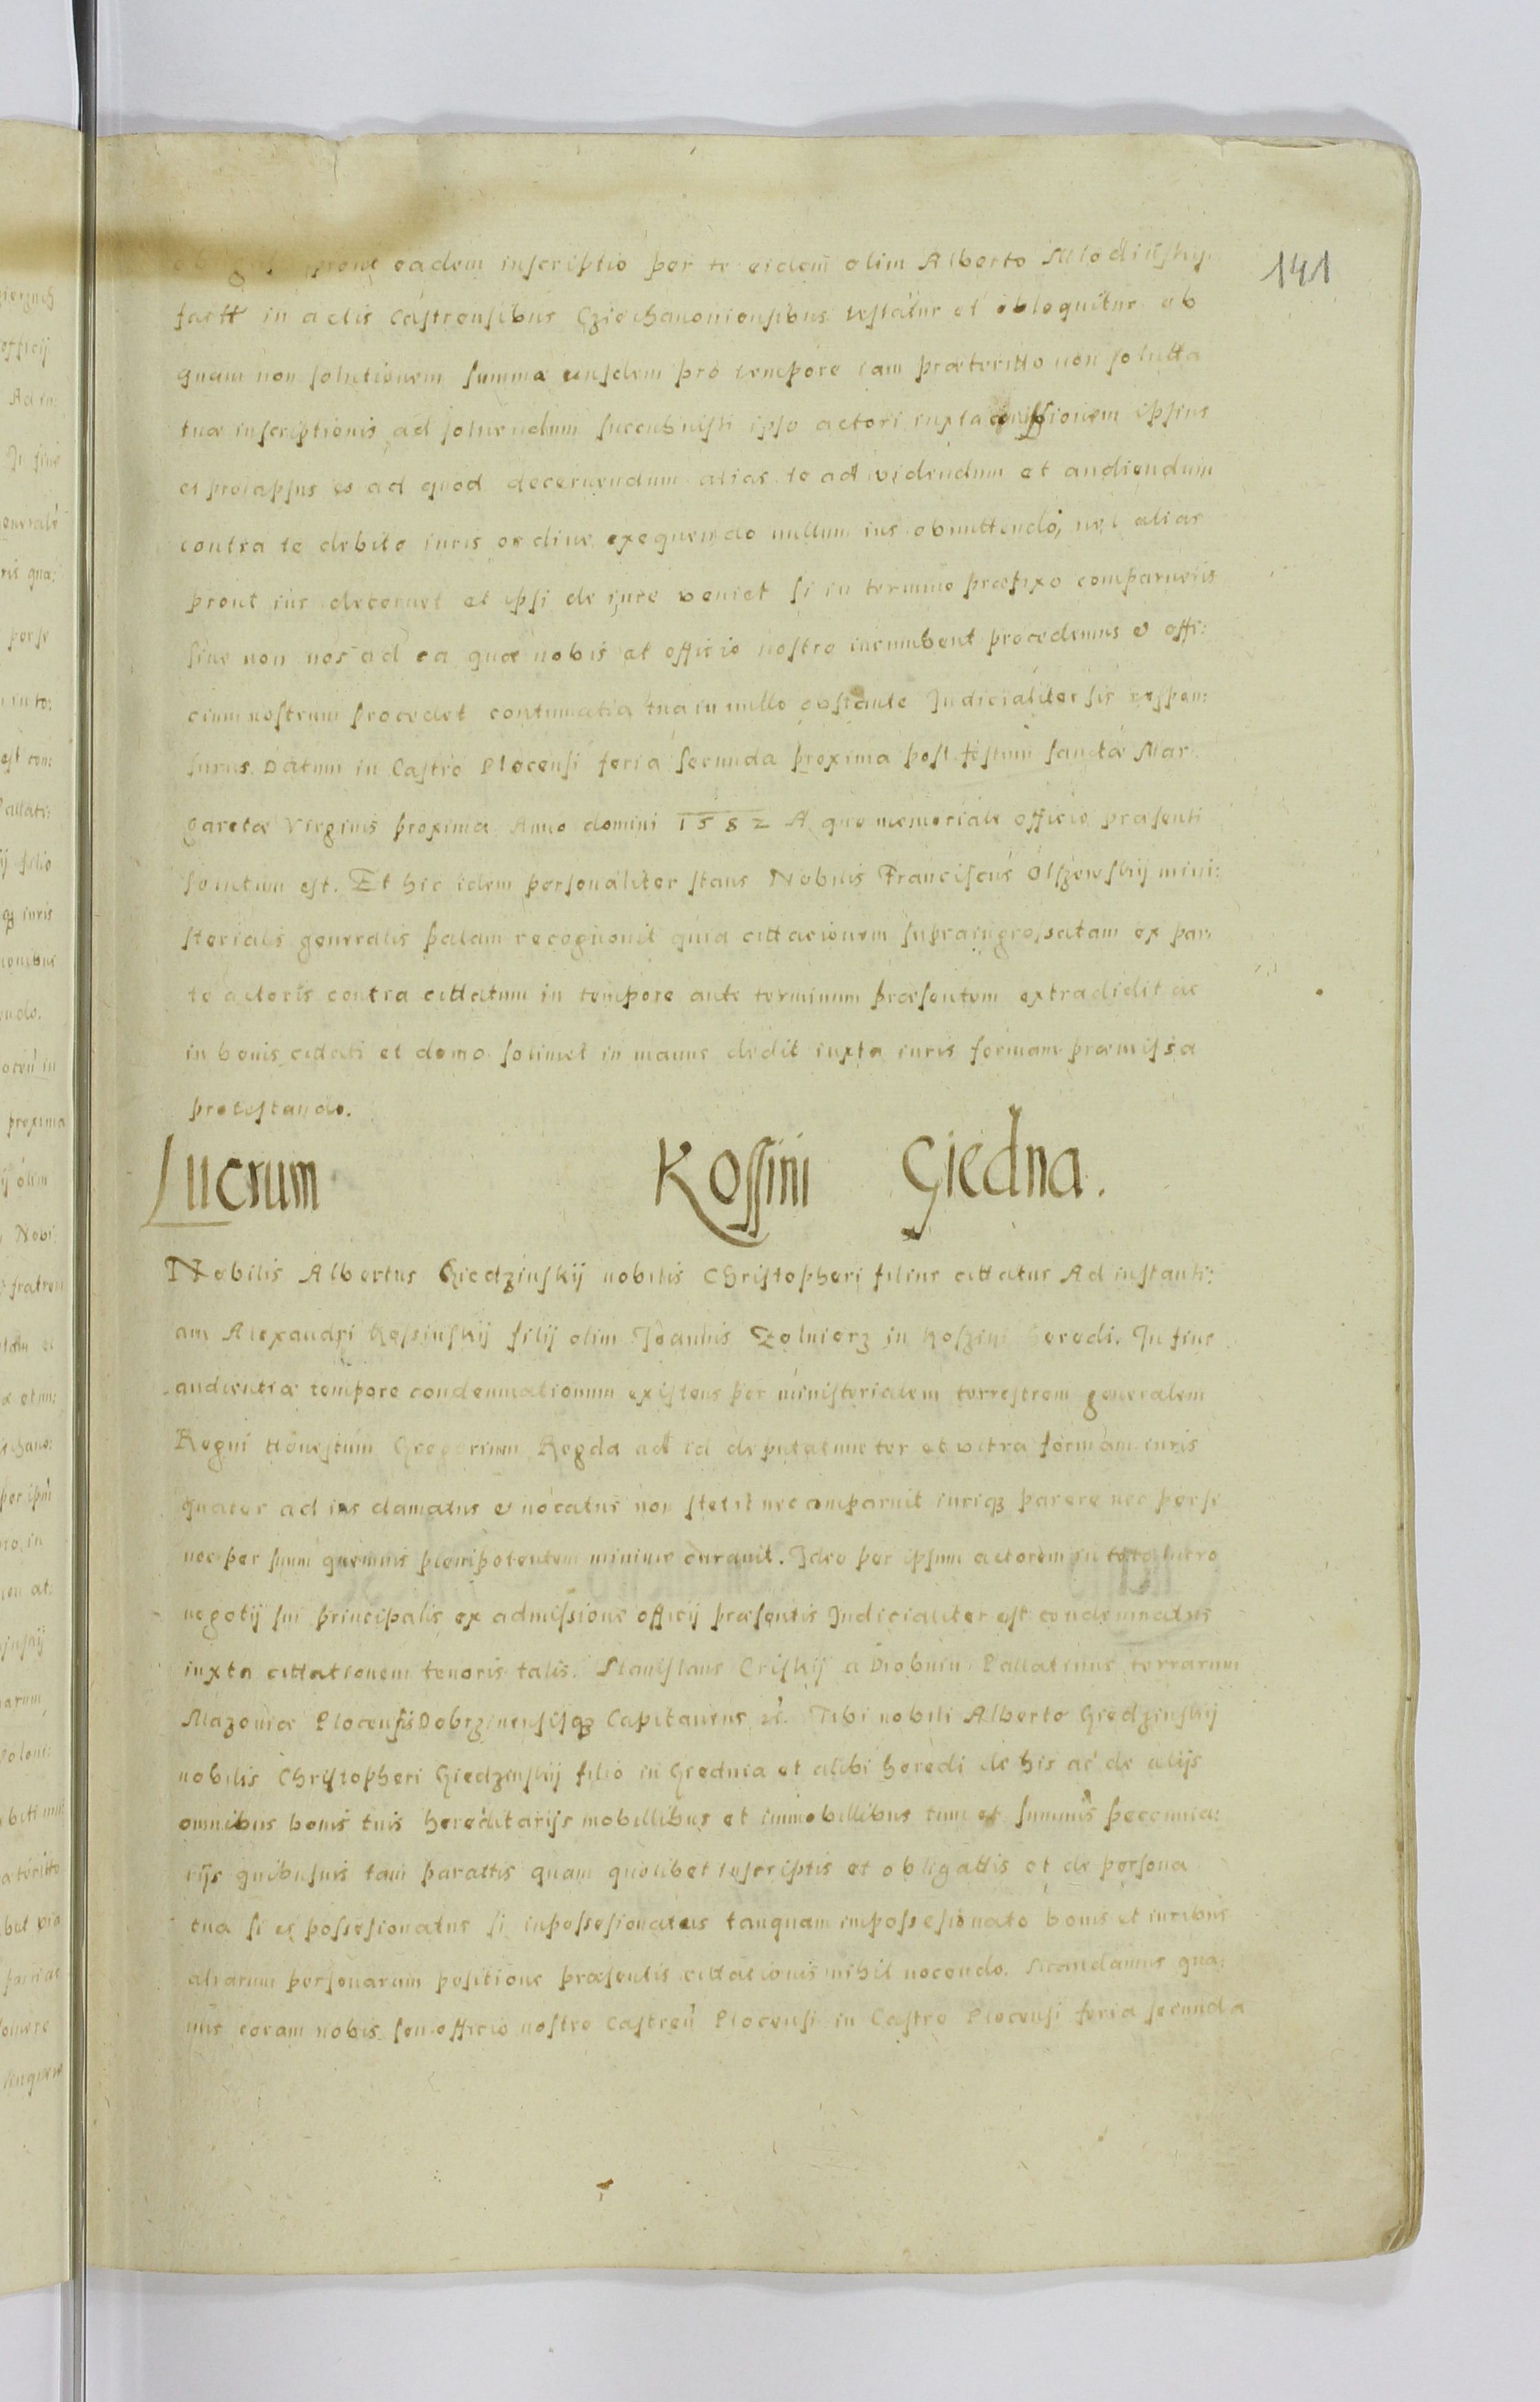 141
eadem inscriptio per te eidem olim Alberto Mlodinskij
factt in actis Castrensibus Cziechanoniensibus testatur et obloquitur ob
quam non solutionem summæ eiusdem pro tempore iam præteritto non soluttæ
tuæ inscriptionis ad soluendum succubuisti ipso actori iuxta ipsius
es prolapsus es ad quod decernendum alias te ad videndum et audiendum
contra te debito iuris ordine exequendo nullum ius obmittendo, nec alias
prout ius decernet et ipsi de jure veniet si in termino præfixo comparueris
siue non nos ad ea quæ nobis et officio nostro incumbent procedemus et offi:
cium nostrum procedet contumatia tua in nullo obstante Judicialiter sis respon:
surus. Datum in Castro Plocensi feria secunda proxima post festum sanctæ Mar
garetæ Virginis proxima Anno domini 1582 A quo memoriale officio præsenti
solutum est. Et hic idem personaliter stans Nobilis Franciscus Olszewskij mini:
sterialis generalis palam recognouit quia cittacionem supraingrossatam ex par:
te actoris contra cittatum in tempore ante terminum præsentem extradidit ac
in bonis cittati et domo solimet in manus dedit iuxta iuris formam præmissa
protestando.
Lucrum Kossini Giedna.
Nobilis Albertus Giedzinskij nobilis Christopheri filius cittatus Ad instanti:
am Alexandri Kossinskij filij olim Joannis Zolnierz in Koszini heredi. In fine
audientiæ tempore condemnationum existens per ministerialem terrestrem generalem
Regni Honestum Gregorium Regda ad id deputatum ter et vltra formam iuris
quater ad ius clamatus et vocatus non stetit nec comparuit iuriqz parere nec per se
nec per suum quemuis plenipotentem minime curauit. Ideo per ipsum actorem in toto lucro
negotij sui principalis ex admissione officij præsentis Judicialiter est condemnatus
iuxta cittationem tenoris talis. Stanislaus Criskij a Drobnin Pallatinus terrarum
Mazoniæ Plocensis Dobrzinensisqz Capitaneus etc. Tibi nobili Alberto Giedzinskij
nobilis Christopheri Giedzinskij filio in Giednia et alibi heredi de his ac de alijs
omnibus bonis tuis hereditarijs mobillibus et immobillibus tum et summis peconia:
rijs quibusuis tam parattis quam quolibet inscriptis et obligattis et de persona
tua si es possesionatus si inpossesionatus tanquam impossesionato bonis et iuribus
aliarum personarum positione præsentis cittationis nihil nocendo. Mandamus qua:
tnus coram nobis seu officio nostro Castren Plocensi in Castro Plocensi feria secunda